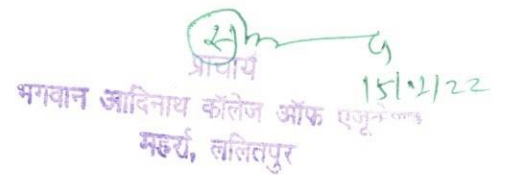 प्राचार्य
15/12/22
भगवान आदिनाथ कॉलेज ऑफ एजूकेशन
महर्रा, ललितपुर